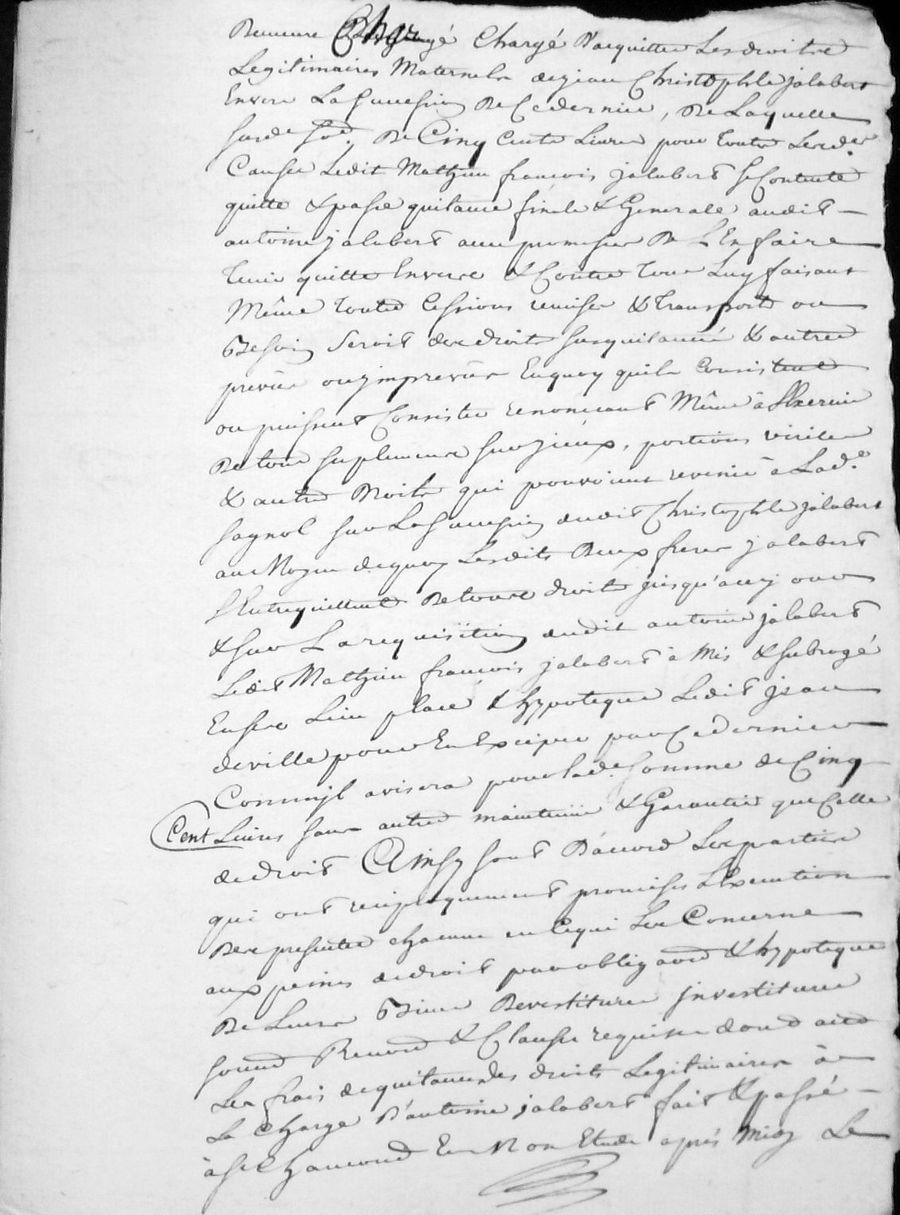 Demeure Chargé d'acquitter Les droits
Legitimaires Maternels de jean Christophle jalabert
Envers La Succession De Ce dernier, De Laquelle
susde so.e De Cinq Cents Livres pour toutes Lesd.es
Causes Ledit Mathieu francois jalabert se Contente
quitte & passe quitance finale & Generale audit
antoine jalabert avec promesse De L'En faire
tenir quitte Envers & Contre tous Luy faisant
Même toutes Cessions remises & transports ou
Besoin Seroit des droits susquitancés & autres
prevûs ou jmprevûs En quoy qu'ils Consistent
ou puissent Consister renoncant Même à
De tous suplemens successieux, portions viriles
& autres Droits qui pouroient revenir à Lad.e
sagnol sur La succession dudit Christophle jalabert
au Moyen dequoy Lesdits Deux freres jalabert
s'Entrequittent De tous droits jusqu'a ce jour
& sur La requisition dudit antoine jalabert
Ledit Mathieu francois jalabert à Mis & subrogé
En son Lieu place & hypoteque Ledit jean
deville pour En Exciper par Ce dernier
Comm'jl avisera pour lad.e somme de Cinq
Cent Livres sans autres maintenüe & Garantie que Celle
de droit Ainsy sont D'accord Les parties
qui ont reciproquement promises L'Execution
Des presentes chacune en Ce qui Les Concerne
aux peines de droit par obligaon & hypoteque
De Leurs Biens Devestiture jnvestiture
soumd Renond & Clauses requises dond acte
Les frais de quitance des droits Legitimaires à
La Charge D'antoine jalabert fait & passé
à st Chamond En Mon Etude après Midy Le